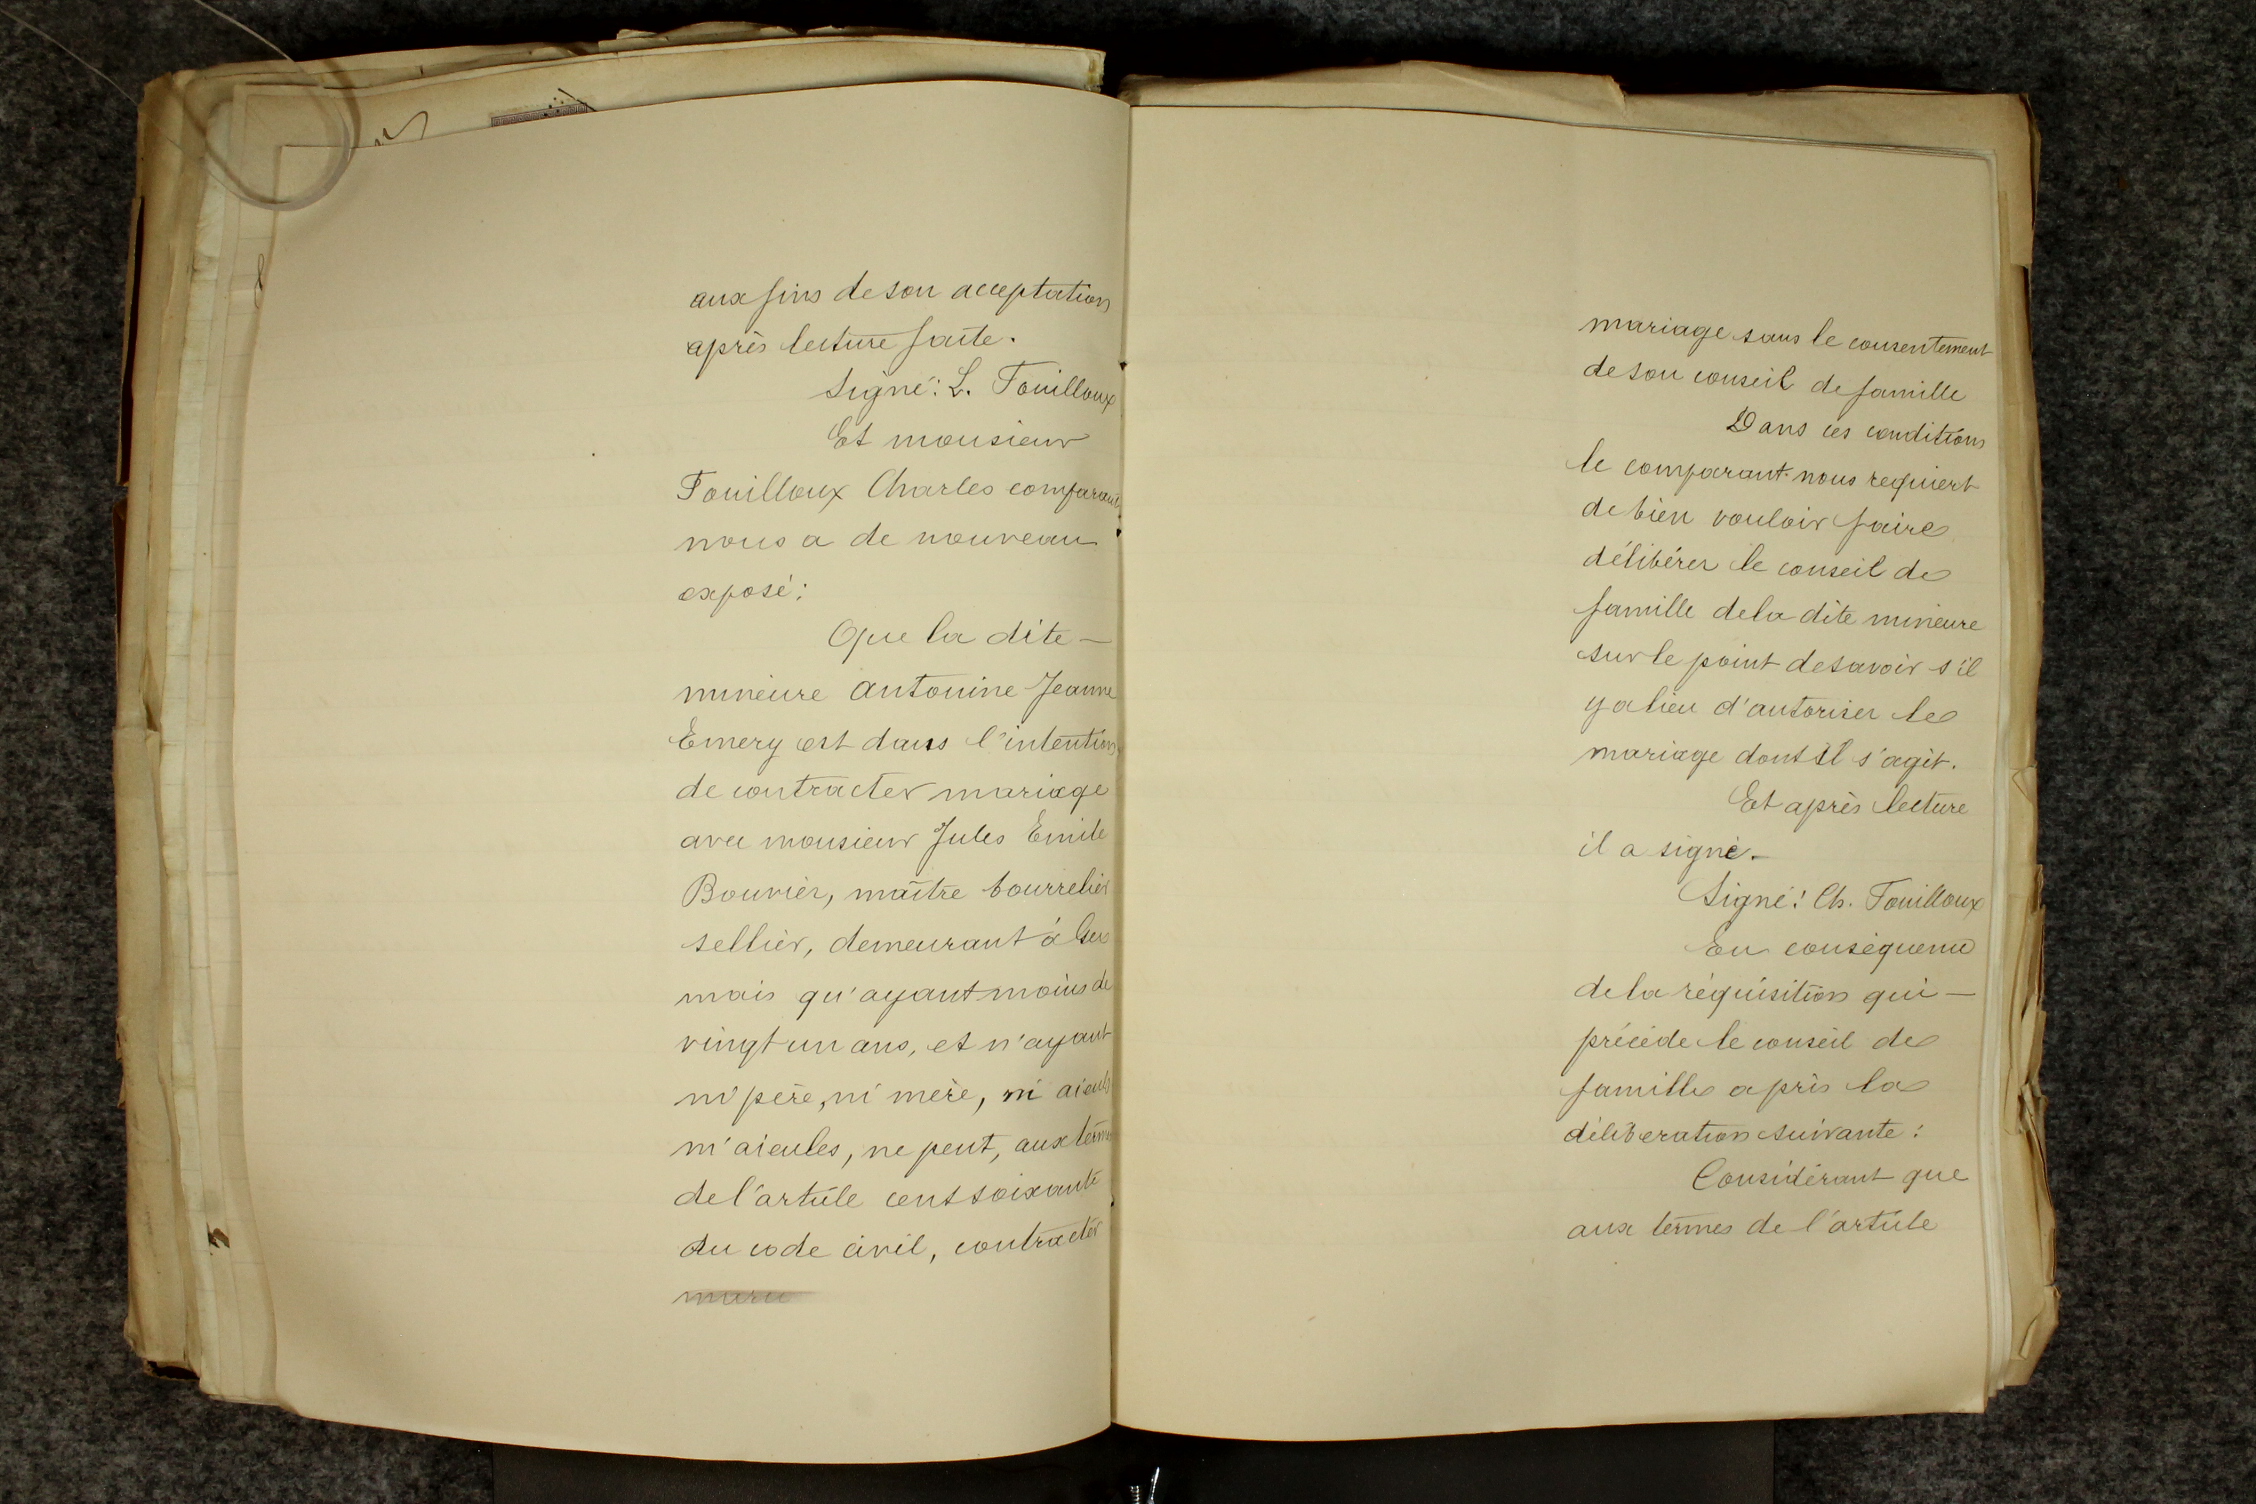 aux fins de son acceptation
après lecture faite.
Signé: L. Fouilloux
Et monsieur
Fouilloux Charles comparant
nous a de nouveau
exposé:
Que la dite —
mineure Antonine Jeanne
Emery est dans l'intention
de contracter mariage
avec monsieur Jules Emile
Bouvier, maître bourrelier
sellier, demeurant à
mais qu'ayant moins de
vingt un ans, et n'ayant
ni père, ni mère, ni aieuls
ni aieules, ne peut, aux termes
de l'article cent soixante
du code civil, contracter
mariage sans le consentement
de son conseil de famille
Dans ces conditions
le comparant nous requiert
de bien vouloir faire
délibérer le conseil de
famille de la dite mineure
sur le point de savoir s'il
y a lieu d'autoriser le
mariage dont il s'agit.
Et après lecture
il a signé.—
Signé: Ch. Fouilloux
En conséquence
de la réquisition qui —
précède le conseil de
famille a pris la
déliberation suivante:
Considérant que
aux termes de l'article